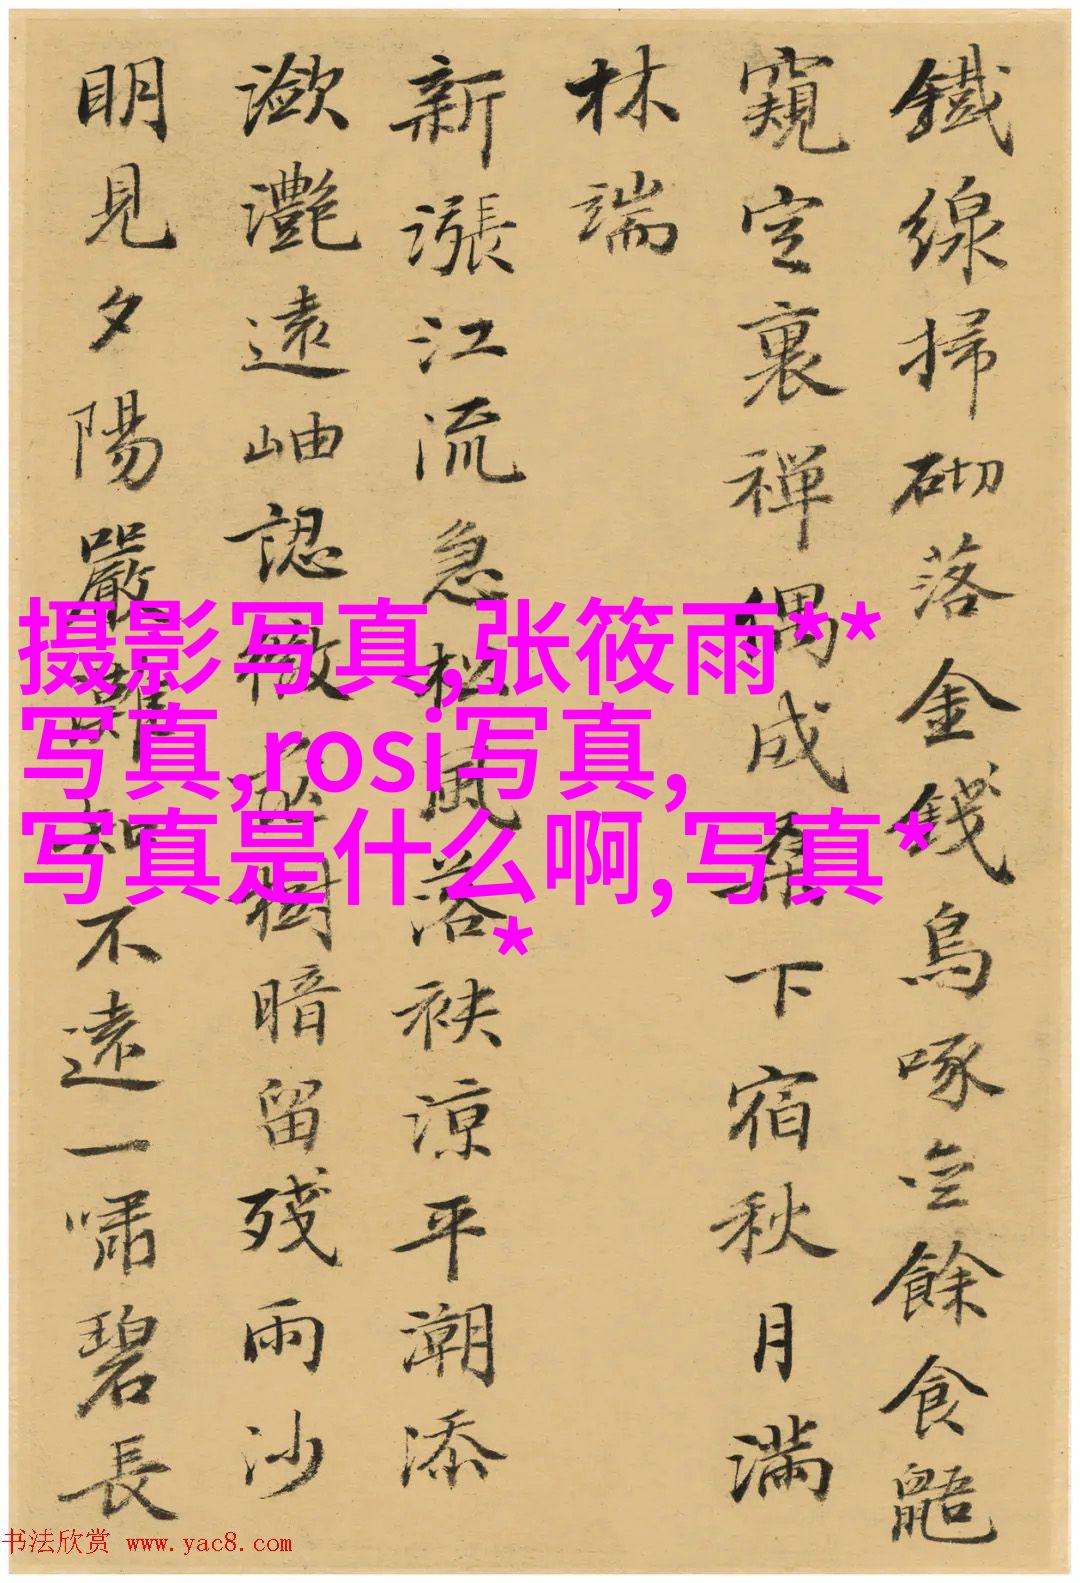 鐵線掃砌落金錢烏啄餘食鼯
窺定裏禪偶成桑下宿秋月滿
林端
新漲江流急松風落袂涼平潮添
瀲灩遠岫認微茫樹暗留殘雨沙
明見夕陽嚴灘知不遠一嘯碧長
摄影写真,张筱雨**
写真,rosi写真,
写真是什么啊,写真*
*
书法欣赏 www.yac8.com